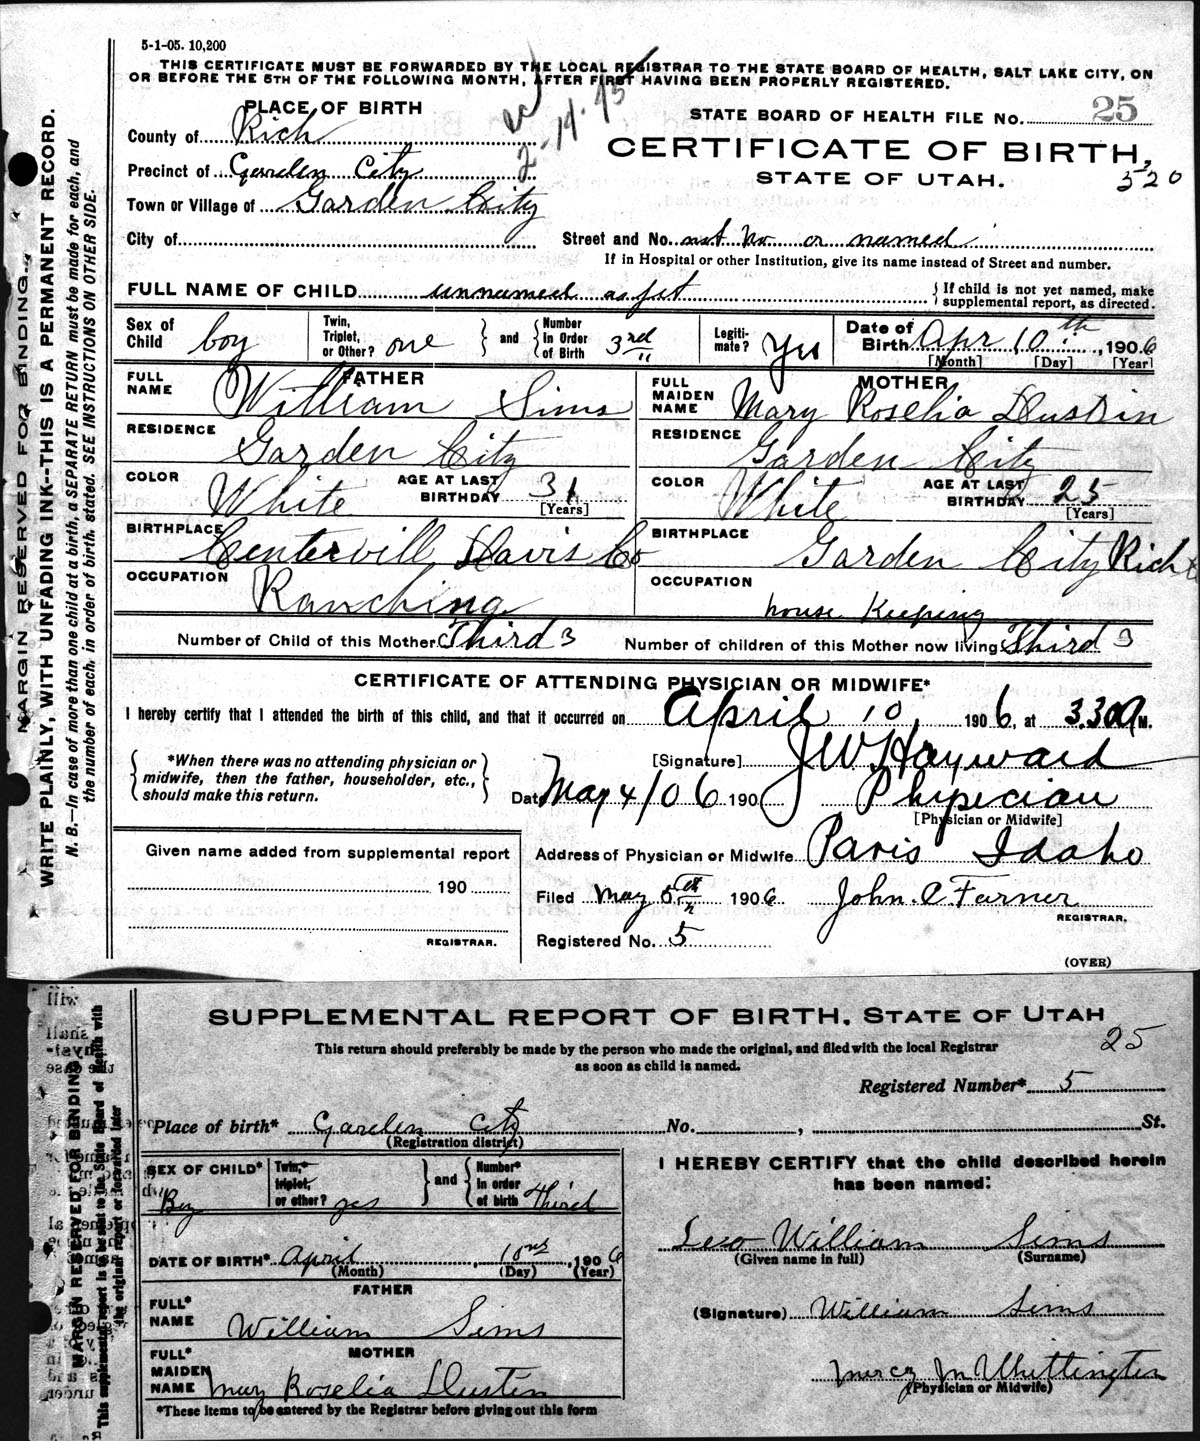 5-1-05. 10,200
THIS CERTIFICATE MUST BE FORWARDED BY THE LOCAL REGISTRAR TO THE STATE BOARD OF HEALTH, SALT LAKE CITY, ON
OR BEFORE THE 5TH OF THE FOLLOWING MONTH, AFTER FIRST HAVING BEEN PROPERLY REGISTERED.
MARGIN RESERVED FOR BINDING.
WRITE PLAINLY, WITH UNFADING INK--THIS IS A PERMANENT RECORD.
N. B.—In case of more than one child at a birth, a SEPARATE RETURN must be made for each, and
the number of each, in order of birth, stated. SEE INSTRUCTIONS ON OTHER SIDE.
PLACE OF BIRTH
County of Rich
Precinct of Garden City
Town or Village of Garden City
City of
STATE BOARD OF HEALTH FILE NO. 25
CERTIFICATE OF BIRTH,
STATE OF UTAH. 520
Street and No. not No or named
If in Hospital or other Institution, give its name instead of Street and number.
FULL NAME OF CHILD unnamed as yet { If child is not yet named, make
supplemental report, as directed.
Sex of Child boy
Twin, Triplet, or Other? one } and { Number in Order of Birth 3rd
Legitimate? Yes
Date of Birth Apr 10th, 1906
[Month] [Day] [Year]
FATHER
FULL NAME William Sims
RESIDENCE Garden City
COLOR White AGE AT LAST BIRTHDAY 31 [Years]
BIRTHPLACE Centervill Davis Co
OCCUPATION Ranching
MOTHER
FULL MAIDEN NAME Mary Roselia Dustin
RESIDENCE Garden City
COLOR White AGE AT LAST BIRTHDAY 25 [Years]
BIRTHPLACE Garden City Rich
OCCUPATION house Keeping
Number of Child of this Mother Third 3 Number of children of this Mother now living Third 3
CERTIFICATE OF ATTENDING PHYSICIAN OR MIDWIFE*
I hereby certify that I attended the birth of this child, and that it occurred on April 10, 1906, at 3.30 A M.
{ *When there was no attending physician or
midwife, then the father, householder, etc.,
should make this return. }
[Signature] J W Hayward
Date May 4/06 190 Physician
[Physician or Midwife]
Given name added from supplemental report
190
REGISTRAR.
Address of Physician or Midwife Paris Idaho
Filed May 5th 1906 John. C. Farner
REGISTRAR.
Registered No. 5
(OVER)
SUPPLEMENTAL REPORT OF BIRTH, STATE OF UTAH
25
This return should preferably be made by the person who made the original, and filed with the local Registrar
as soon as child is named.
Registered Number* 5
MARGIN RESERVED FOR BINDING
Place of birth* Garden City No. , St.
(Registration district)
SEX OF CHILD* Boy
Twin,* triplet, or other? yes } and { Number* in order of birth Third
DATE OF BIRTH* April 10, 1906
(Month) (Day) (Year)
FATHER
FULL* NAME William Sims
MOTHER
FULL* MAIDEN NAME Mary Roselia Dustin
*These items to be entered by the Registrar before giving out this form
I HEREBY CERTIFY that the child described herein
has been named:
Leo William Sims
(Given name in full) (Surname)
(Signature) William Sims
Mercy M Whittington
(Physician or Midwife)